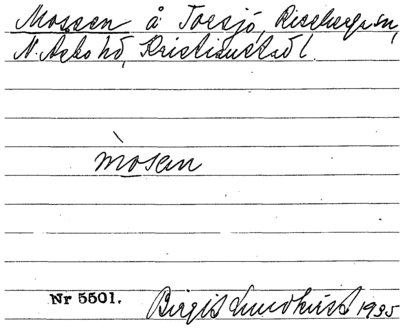 Mossen å Torsjö, Riseberga sn,
N. Åsbo hd, Kristianstads l.
mosen
Nr 5501. Birgit Lundkvist 1935